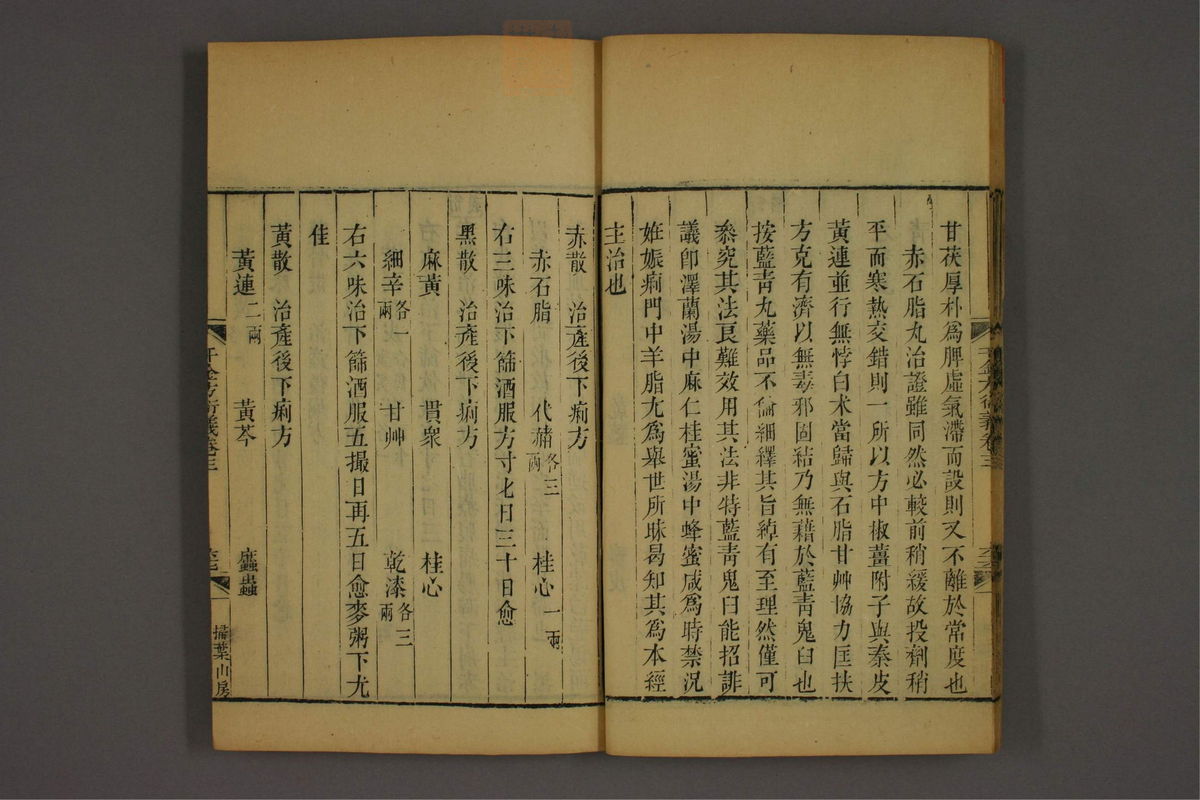 甘茯厚朴爲脾虛氣滯而設則又不離於常度也
赤石脂丸治證雖同然必較前稍緩故投劑稍
平而寒熱交錯則一所以方中椒薑附子與秦皮
黃連並行無悖白术當歸與石脂甘艸協力匡扶
方克有濟以無毒邪固結乃無藉於藍青鬼臼也
按藍青丸藥品不倫細繹其旨綽有至理然僅可
叅究其法艮難效用其法非特藍青鬼臼能招誹
議卽澤蘭湯中麻仁桂蜜湯中蜂蜜咸爲時禁况
姙娠痢門中羊脂尤爲舉世所昧曷知其爲本經
主治也
千金方衍義卷三
赤散 治產後下痢方
赤石脂 代赭各三兩 桂心一兩
右三味治下篩酒服方寸匕日三十日愈
黑散 治產後下痢方
麻黃 貫衆 桂心
細辛各一兩 甘艸 乾漆各三兩
右六味治下篩酒服五撮日再五日愈麥粥下尤
佳
黃散 治產後下痢方
黃連二兩 黃芩 䗪蟲
千金方衍義卷三
掃葉山房